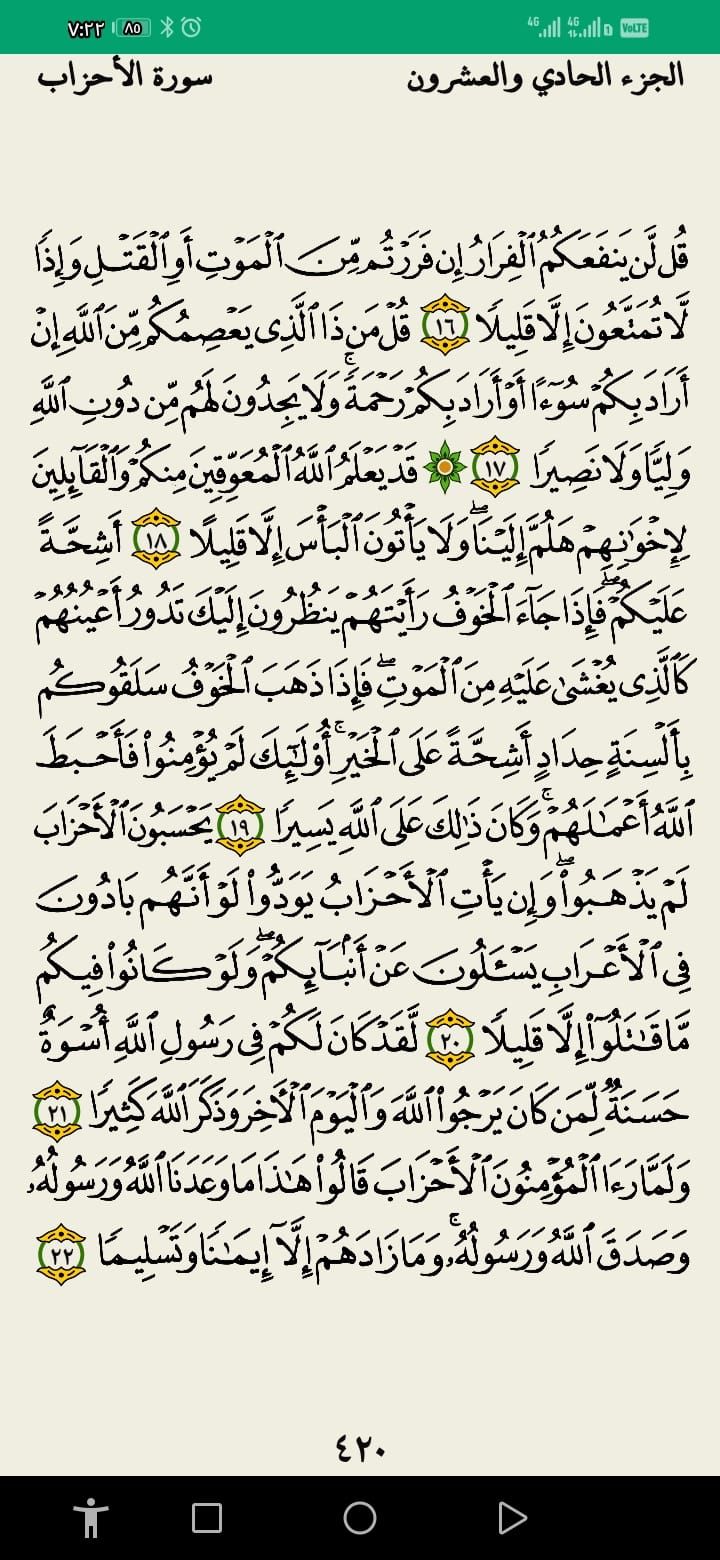 ٧:٢٢ ٨٥ 4G 4G VoLTE
الجزء الحادي والعشرون سورة الأحزاب
قُل لَّن يَنفَعَكُمُ ٱلْفِرَارُ إِن فَرَرْتُم مِّنَ ٱلْمَوْتِ أَوِ ٱلْقَتْلِ وَإِذًا
لَّا تُمَتَّعُونَ إِلَّا قَلِيلًا ١٦ قُلْ مَن ذَا ٱلَّذِى يَعْصِمُكُم مِّنَ ٱللَّهِ إِنْ
أَرَادَ بِكُمْ سُوٓءًا أَوْ أَرَادَ بِكُمْ رَحْمَةً ۚ وَلَا يَجِدُونَ لَهُم مِّن دُونِ ٱللَّهِ
وَلِيًّا وَلَا نَصِيرًا ١٧ ۞ قَدْ يَعْلَمُ ٱللَّهُ ٱلْمُعَوِّقِينَ مِنكُمْ وَٱلْقَآئِلِينَ
لِإِخْوَٰنِهِمْ هَلُمَّ إِلَيْنَا ۖ وَلَا يَأْتُونَ ٱلْبَأْسَ إِلَّا قَلِيلًا ١٨ أَشِحَّةً
عَلَيْكُمْ ۖ فَإِذَا جَآءَ ٱلْخَوْفُ رَأَيْتَهُمْ يَنظُرُونَ إِلَيْكَ تَدُورُ أَعْيُنُهُمْ
كَٱلَّذِى يُغْشَىٰ عَلَيْهِ مِنَ ٱلْمَوْتِ ۖ فَإِذَا ذَهَبَ ٱلْخَوْفُ سَلَقُوكُم
بِأَلْسِنَةٍ حِدَادٍ أَشِحَّةً عَلَى ٱلْخَيْرِ ۚ أُو۟لَٰٓئِكَ لَمْ يُؤْمِنُوا۟ فَأَحْبَطَ
ٱللَّهُ أَعْمَٰلَهُمْ ۚ وَكَانَ ذَٰلِكَ عَلَى ٱللَّهِ يَسِيرًا ١٩ يَحْسَبُونَ ٱلْأَحْزَابَ
لَمْ يَذْهَبُوا۟ ۖ وَإِن يَأْتِ ٱلْأَحْزَابُ يَوَدُّوا۟ لَوْ أَنَّهُم بَادُونَ
فِى ٱلْأَعْرَابِ يَسْـَٔلُونَ عَنْ أَنۢبَآئِكُمْ ۖ وَلَوْ كَانُوا۟ فِيكُم
مَّا قَٰتَلُوٓا۟ إِلَّا قَلِيلًا ٢٠ لَّقَدْ كَانَ لَكُمْ فِى رَسُولِ ٱللَّهِ أُسْوَةٌ
حَسَنَةٌ لِّمَن كَانَ يَرْجُوا۟ ٱللَّهَ وَٱلْيَوْمَ ٱلْأَخِرَ وَذَكَرَ ٱللَّهَ كَثِيرًا ٢١
وَلَمَّا رَءَا ٱلْمُؤْمِنُونَ ٱلْأَحْزَابَ قَالُوا۟ هَٰذَا مَا وَعَدَنَا ٱللَّهُ وَرَسُولُهُۥ
وَصَدَقَ ٱللَّهُ وَرَسُولُهُۥ ۚ وَمَا زَادَهُمْ إِلَّآ إِيمَٰنًا وَتَسْلِيمًا ٢٢
٤٢٠